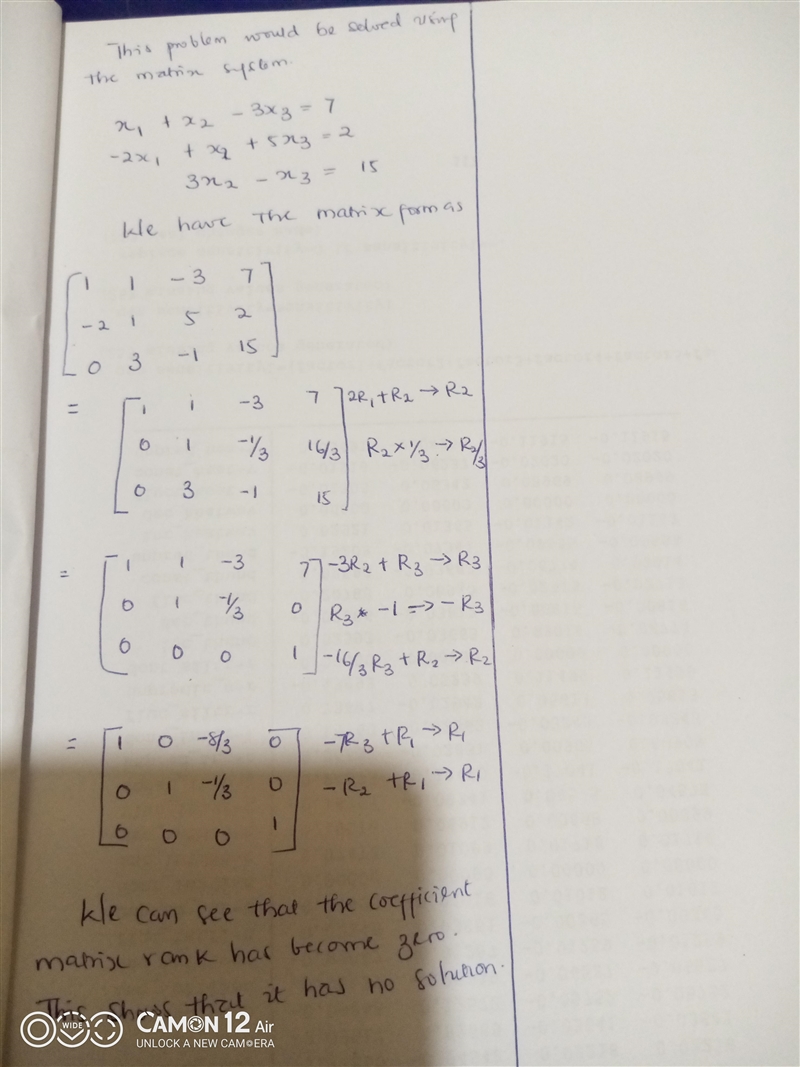 This problem would be solved using
the matrix system.
x₁ + x₂ - 3x₃ = 7
-2x₁ + x₂ + 5x₃ = 2
3x₂ - x₃ = 15
We have the matrix form as
1 1 -3 7
-2 1 5 2
0 3 -1 15
= 1 1 -3 7 2R₁ + R₂ → R₂
0 1 -1/3 16/3 R₂ × 1/3 → R₂/3
0 3 -1 15
= 1 1 -3 7 -3R₂ + R₃ → R₃
0 1 -1/3 0 R₃ * -1 => -R₃
0 0 0 1 -16/3 R₃ + R₂ → R₂
= 1 0 -8/3 0 -7R₃ + R₁ → R₁
0 1 -1/3 0 -R₂ + R₁ → R₁
0 0 0 1
We can see that the coefficient
matrix rank has become zero.
This shows that it has no solution.
WIDE CAMON 12 Air
UNLOCK A NEW CAMERA